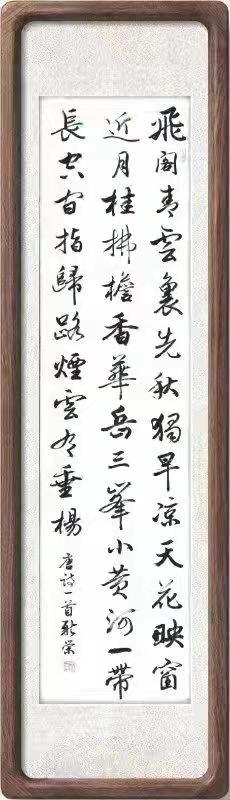 飛閣青雲裏先秋獨早涼天花映窗
近月桂拂檐香華岳三峯小黄河一帶
長空間指歸路煙雲有垂楊
唐诗一首